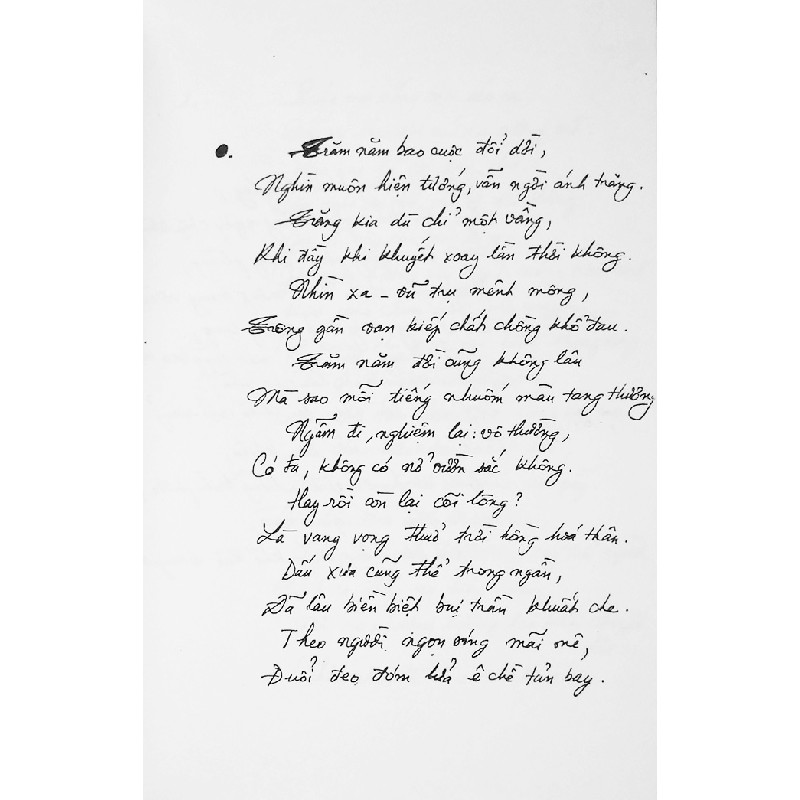 Trăm năm bao cuộc đổi dời,
Nghìn muôn hiện tướng, vẫn ngời ánh trăng.
Trăng kia dù chỉ một vầng,
Khi đầy khi khuyết xoay lần thời không.
Nhìn xa - vũ trụ mênh mông,
Trông gần vạn kiếp chất chồng khổ đau.
Trăm năm đời cũng không lâu
Mà sao mỗi tiếng nhuốm màu tang thương
Ngẫm đi, nghiệm lại: vô thường,
Có đa, không có nở vườn sắc không.
Hay rồi còn lại cõi lòng?
Là vang vọng thuở trời hồng hoá thân.
Dấu xưa cũng thể trong ngần,
Đã lâu biền biệt bụi trần khuất che.
Theo người ngọn sóng mãi mê,
Đuổi đeo đóm lửa ê chề tủn bay.